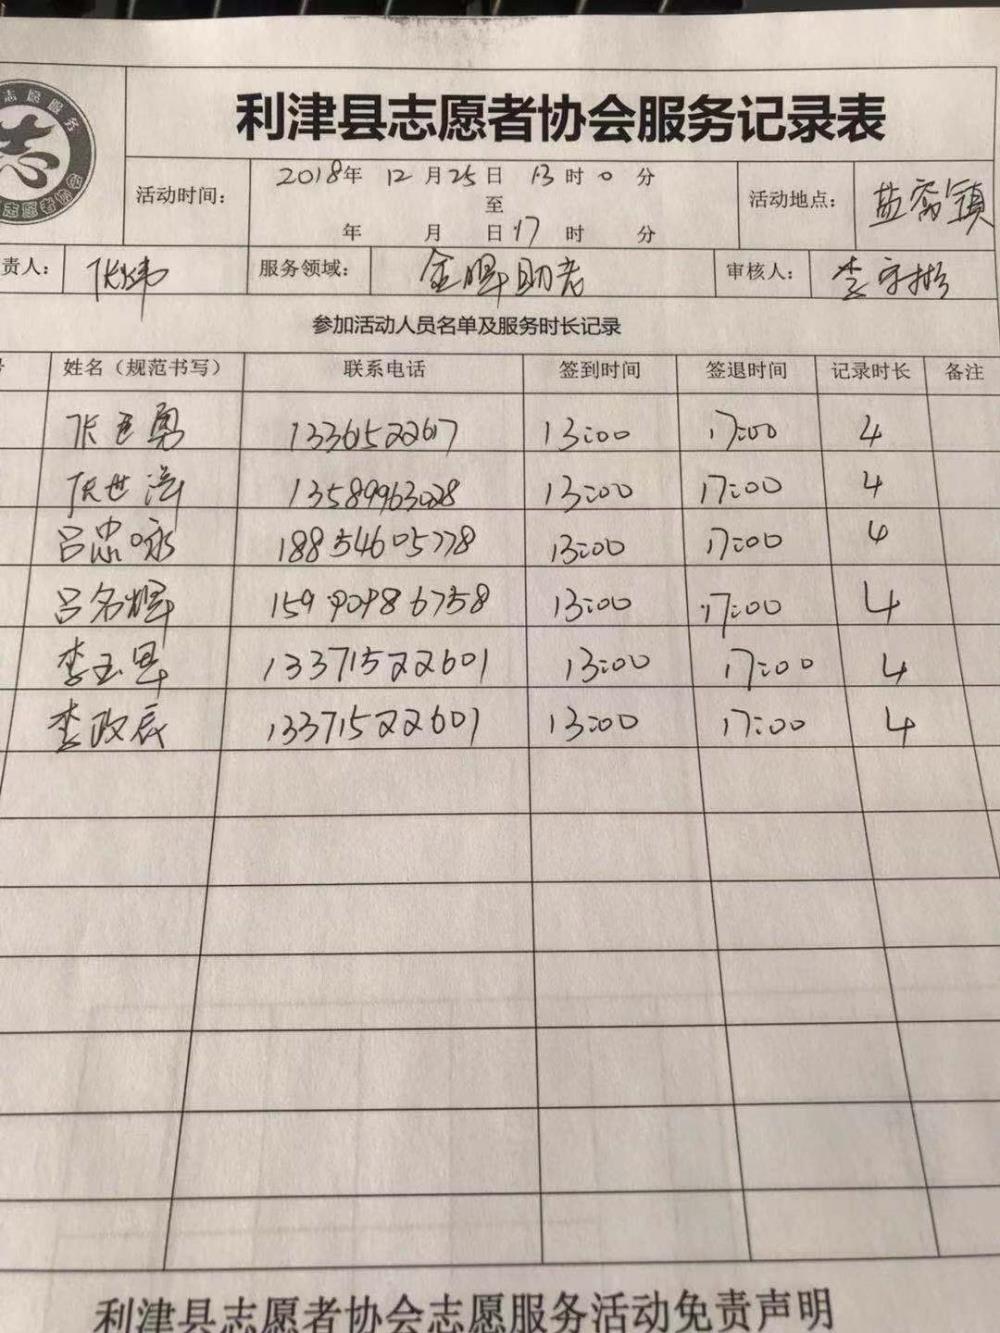 志愿服务
志
利津县志愿者协会服务记录表
活动时间: 2018年 12月25日 13时0分
至
年 月 日 17时 分
活动地点: 盐窝镇
责人: 张炜 服务领域: 金晖助老 审核人: 李守彬
参加活动人员名单及服务时长记录
姓名（规范书写） 联系电话 签到时间 签退时间 记录时长 备注
张 勇 13361522617 13:00 17:00 4
张世 13589963028 13:00 17:00 4
吕忠咏 18854605778 13:00 17:00 4
吕名辉 15909096758 13:00 17:00 4
李玉 13371522601 13:00 17:00 4
李政辰 13371522601 13:00 17:00 4
利津县志愿者协会志愿服务活动免责声明